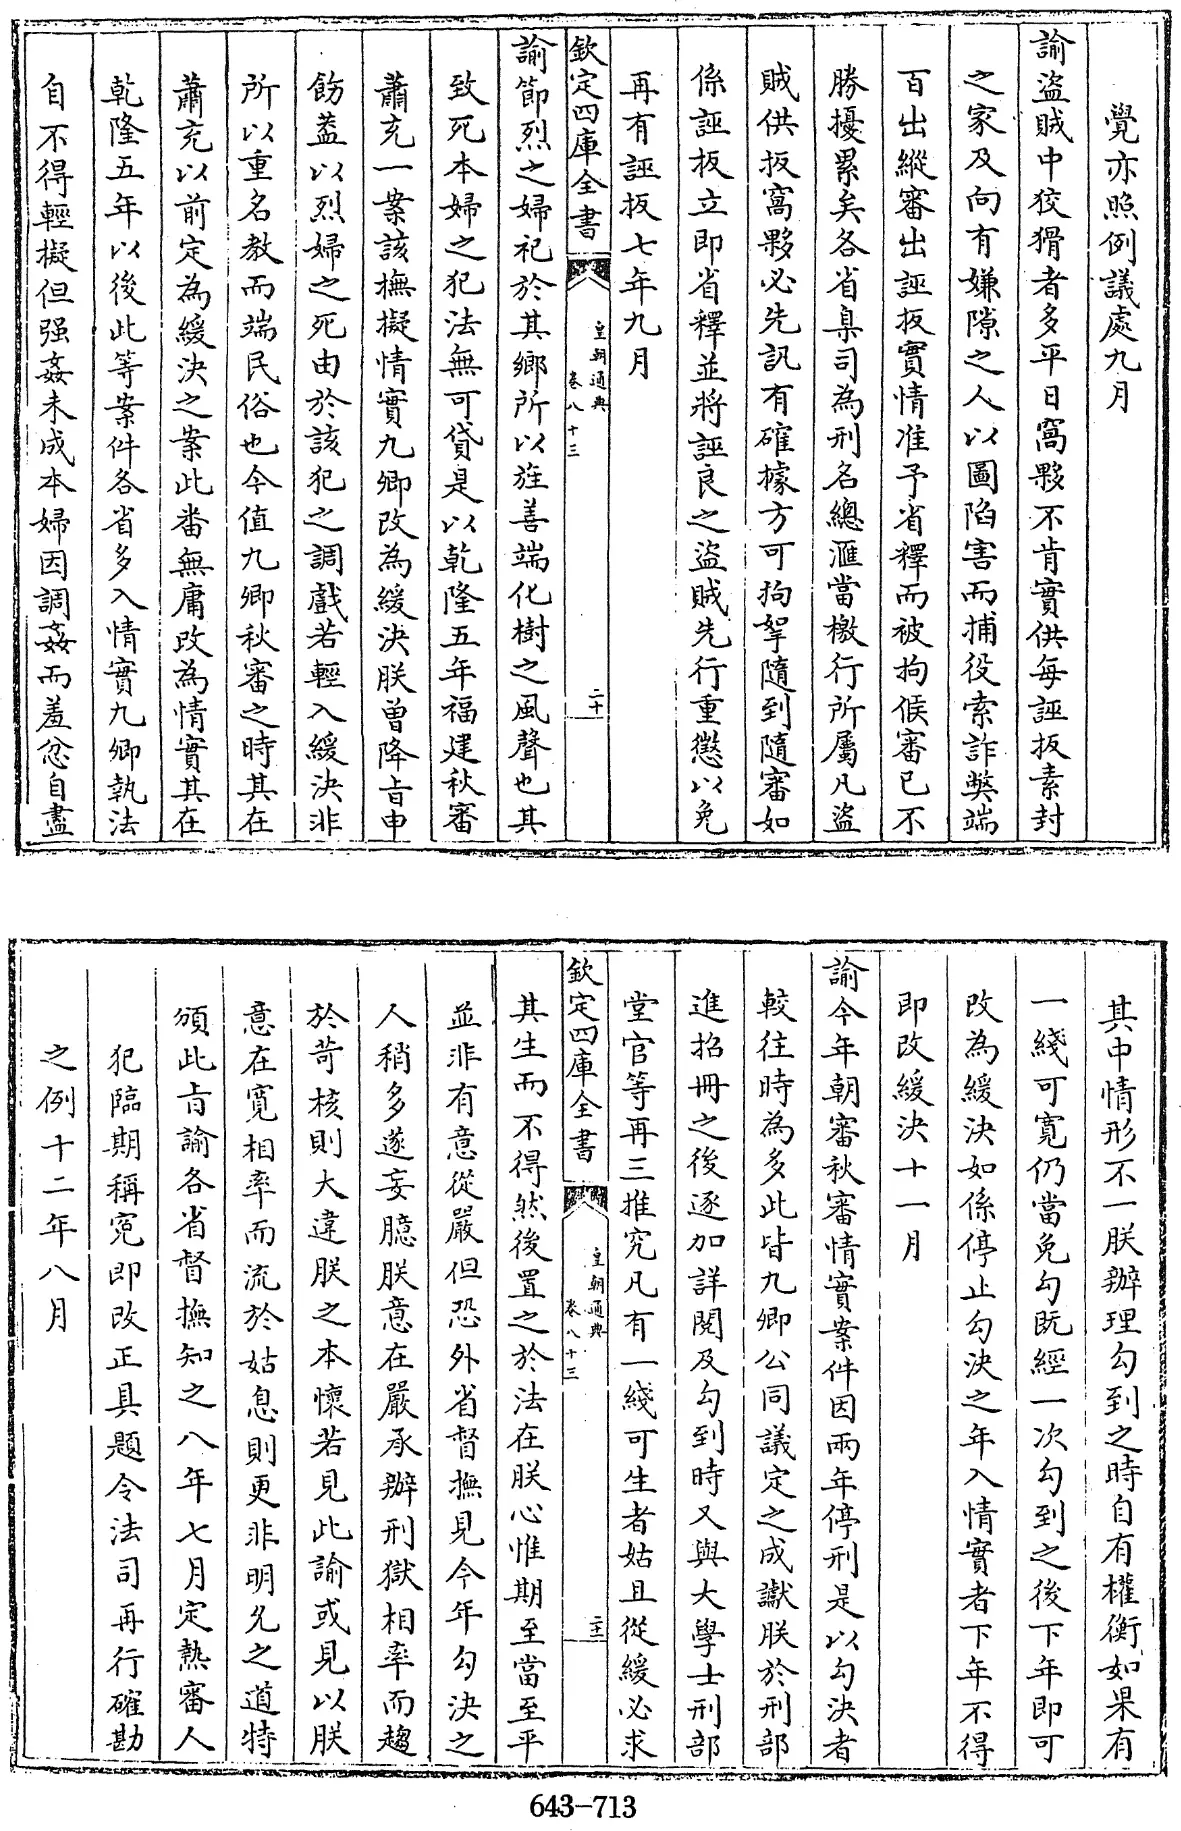 覺亦照例議處九月
諭盜賊中狡猾者多平日窩夥不肯實供每誣扳素封
之家及向有嫌隙之人以圖陷害而捕役索詐弊端
百出縱審出誣扳實情准予省釋而被拘候審已不
勝擾累矣各省臬司為刑名總滙當檄行所屬凡盜
賊供扳窩夥必先訊有確據方可拘拏隨到隨審如
係誣扳立即省釋並將誣良之盜賊先行重懲以免
再有誣扳七年九月
欽定四庫全書
皇朝通典
卷八十三
二十
諭節烈之婦祀於其鄉所以旌善端化樹之風聲也其
致死本婦之犯法無可貸是以乾隆五年福建秋審
蕭充一案該撫擬情實九卿改為緩決朕曾降旨申
飭蓋以烈婦之死由於該犯之調戲若輕入緩決非
所以重名教而端民俗也今值九卿秋審之時其在
蕭充以前定為緩決之案此番無庸改為情實其在
乾隆五年以後此等案件各省多入情實九卿執法
自不得輕擬但强姦未成本婦因調姦而羞忿自盡
其中情形不一朕辦理勾到之時自有權衡如果有
一綫可寬仍當免勾既經一次勾到之後下年即可
改為緩決如係停止勾決之年入情實者下年不得
即改緩決十一月
諭今年朝審秋審情實案件因兩年停刑是以勾決者
較往時為多此皆九卿公同議定之成讞朕於刑部
進招冊之後逐加詳閱及勾到時又與大學士刑部
堂官等再三推究凡有一綫可生者姑且從緩必求
欽定四庫全書
皇朝通典
卷八十三
二十一
其生而不得然後置之於法在朕心惟期至當至平
並非有意從嚴但恐外省督撫見今年勾決之
人稍多遂妄臆朕意在嚴承辦刑獄相率而趨
於苛核則大違朕之本懷若見此諭或見以朕
意在寬相率而流於姑息則更非明允之道特
頒此旨諭各省督撫知之八年七月定熱審人
犯臨期稱寃即改正具題令法司再行確勘
之例十二年八月
643-713